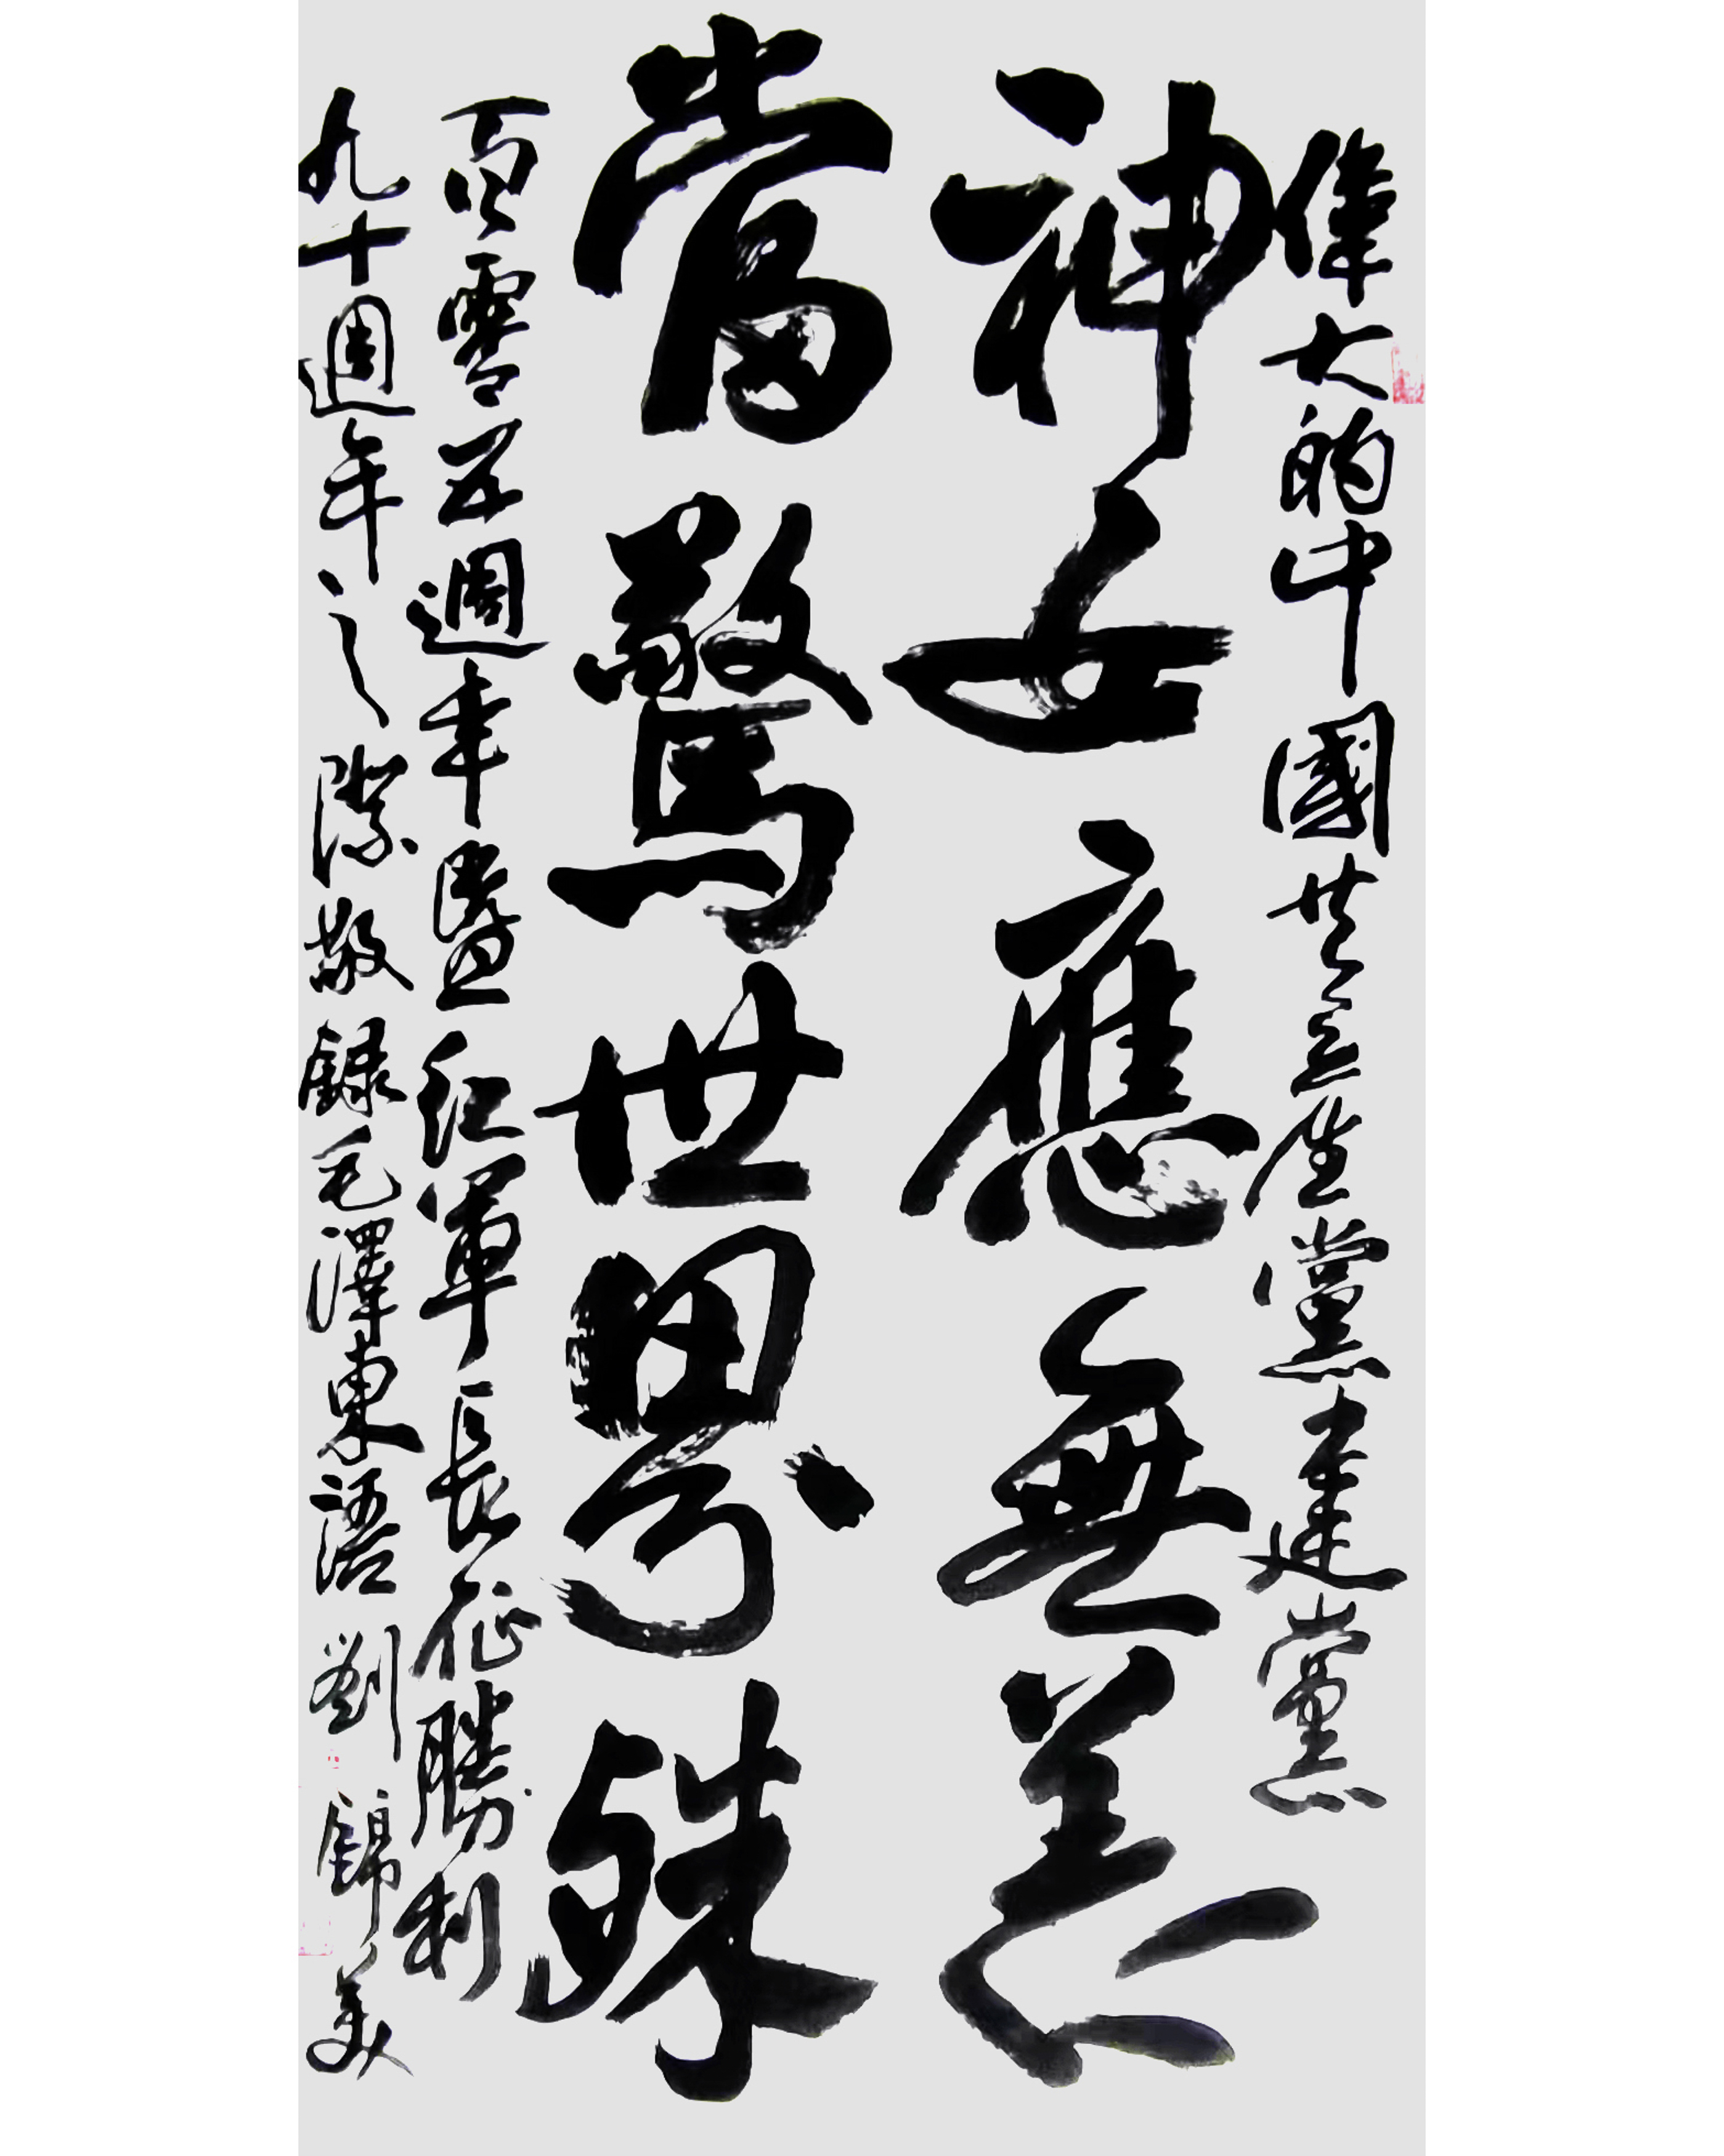 偉大的中國共產黨建黨
神女應無恙
當驚世界殊
百零五週年暨紅軍長征勝利
九十週年之際敬錄毛澤東語劉錦美